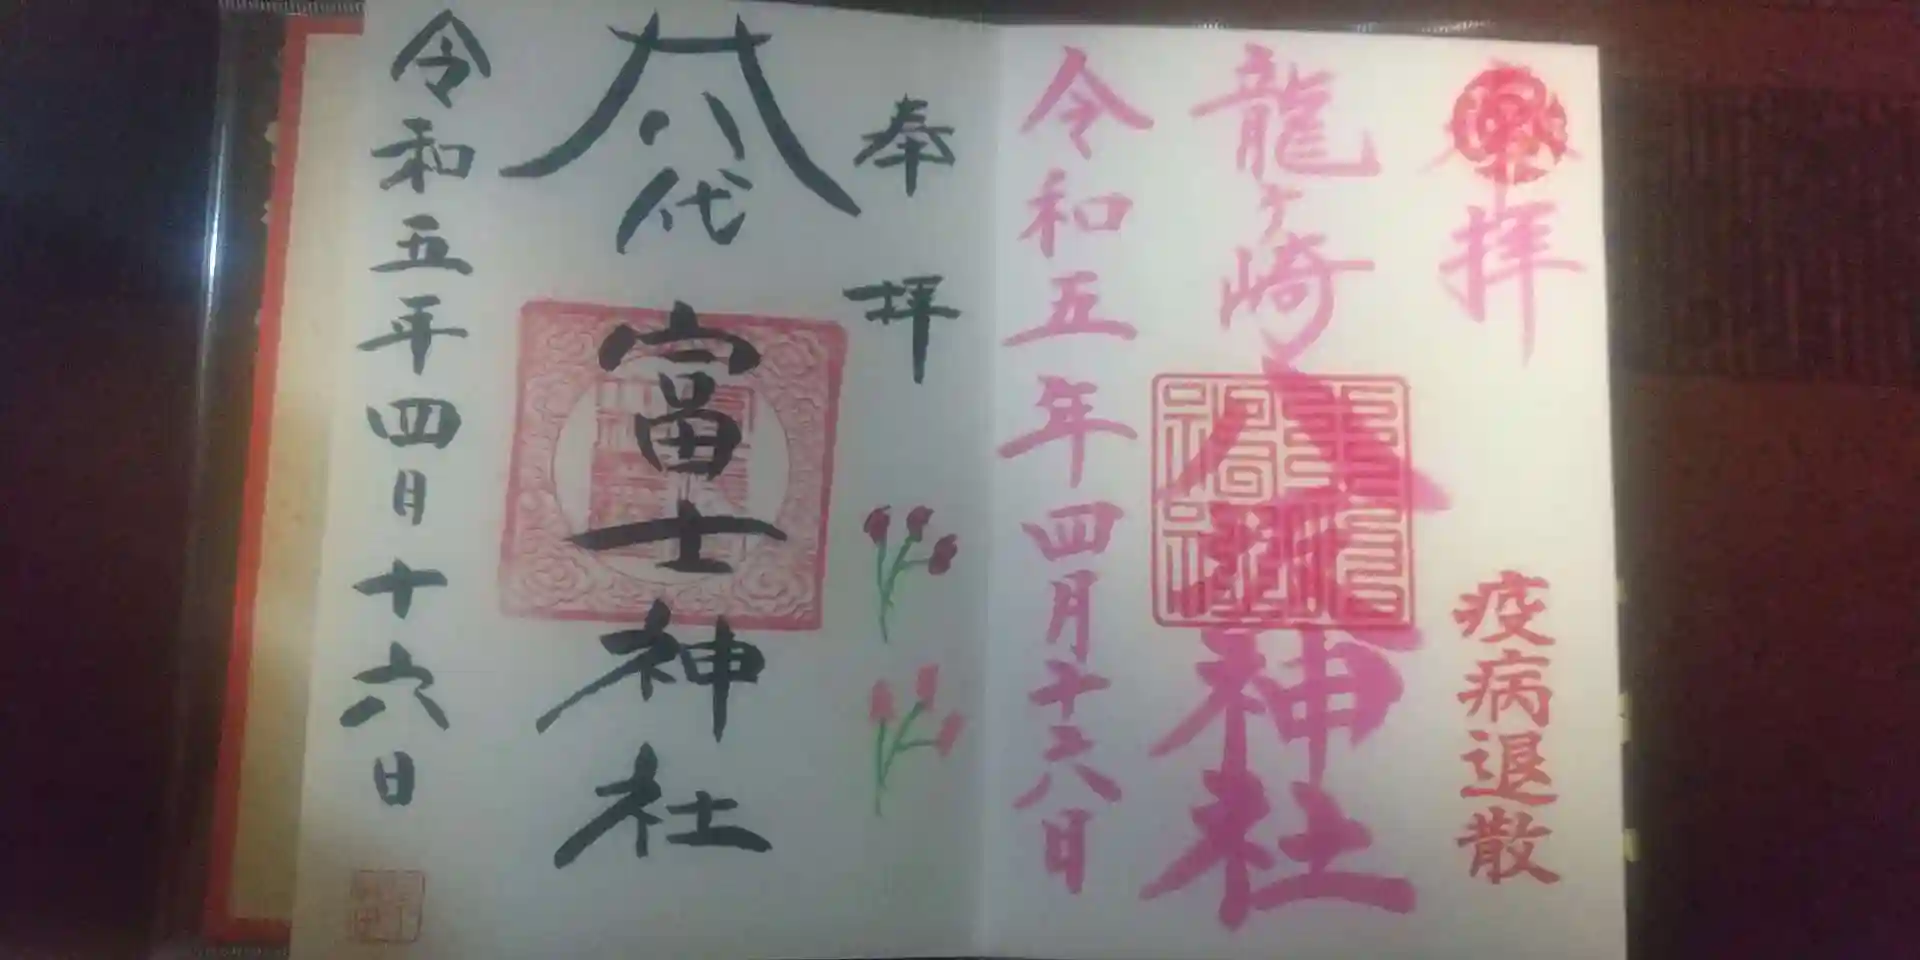 奉拝
疫病退散
龍ケ崎八坂神社
令和五年四月十六日
奉拝
八代
富士神社
令和五年四月十六日